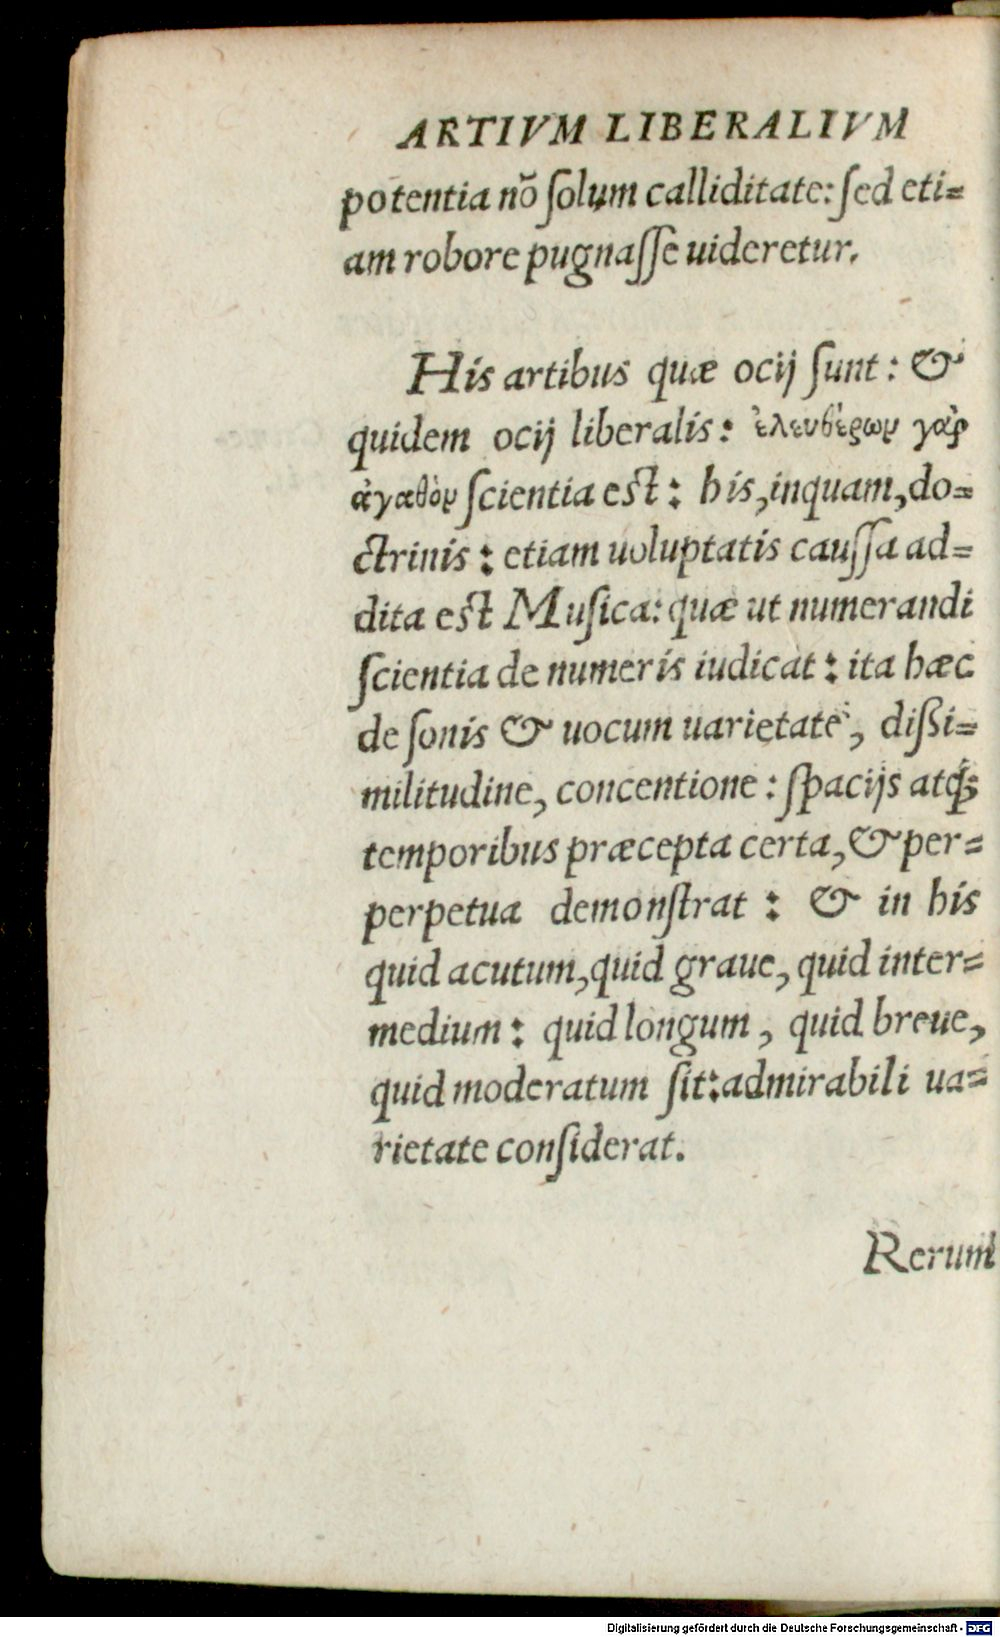 ARTIVM LIBERALIVM
potentia nō ſolum calliditate: ſed eti=
am robore pugnaſſe uideretur.
His artibus quæ ocij ſunt: &
quidem ocij liberalis: ἐλευθέρων γὰρ
ἀγαθὸν ſcientia eſt: his, inquam, do=
ctrinis: etiam uoluptatis cauſſa ad=
dita eſt Muſica: quæ ut numerandi
ſcientia de numeris iudicat: ita hæc
de ſonis & uocum uarietate, diſsi=
militudine, concentione: ſpacijs atq;
temporibus præcepta certa, & per=
perpetua demonſtrat: & in his
quid acutum, quid graue, quid inter=
medium: quid longum, quid breue,
quid moderatum ſit: admirabili ua=
rietate conſiderat.
Rerum
Digitalisierung gefördert durch die Deutsche Forschungsgemeinschaft - DFG